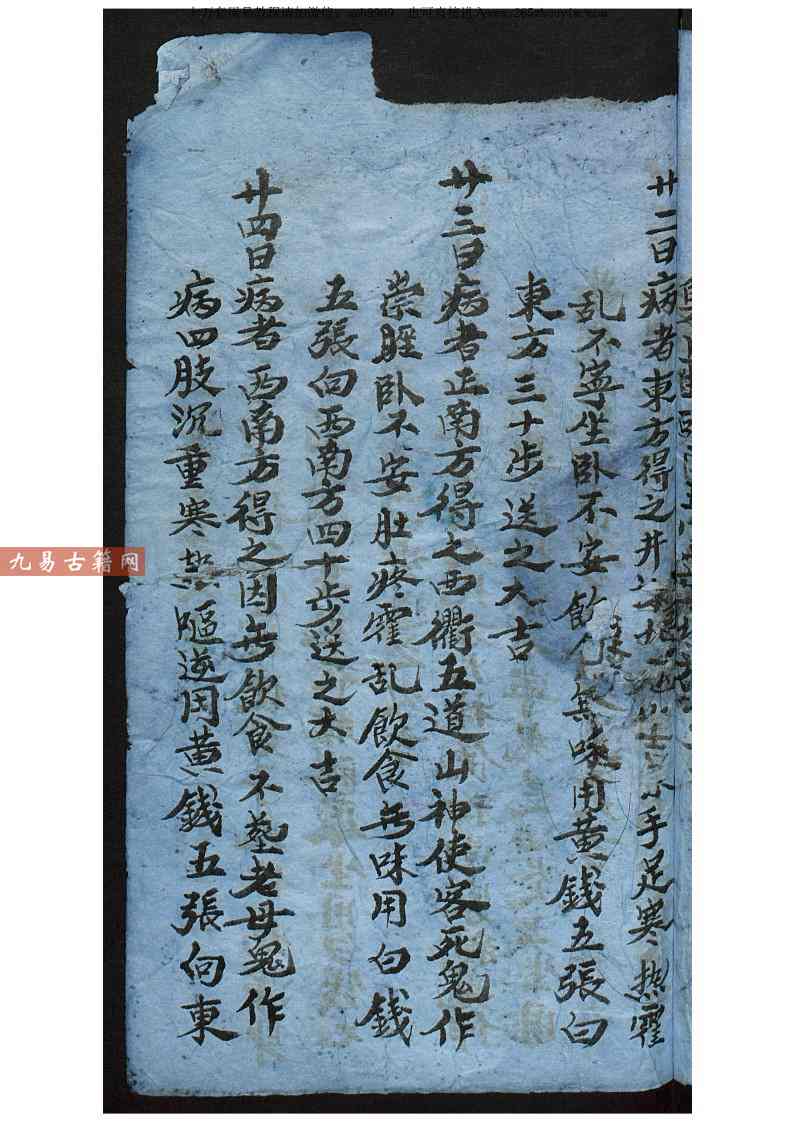 廿二日病者東方得之井
小手足寒热霍
乱不寧坐卧不安飲食無味用黄錢五張向
東方三十步送之大吉
廿三日病者正南方得之西衢五道山神使客死鬼作
祟睡卧不安肚疼霍乱飲食無味用白錢
五張向西南方四十步送之大吉
廿四日病者西南方得之因無飲食不葬老母鬼作
病四肢沉重寒热嘔逆用黄錢五張向東
九易古籍网